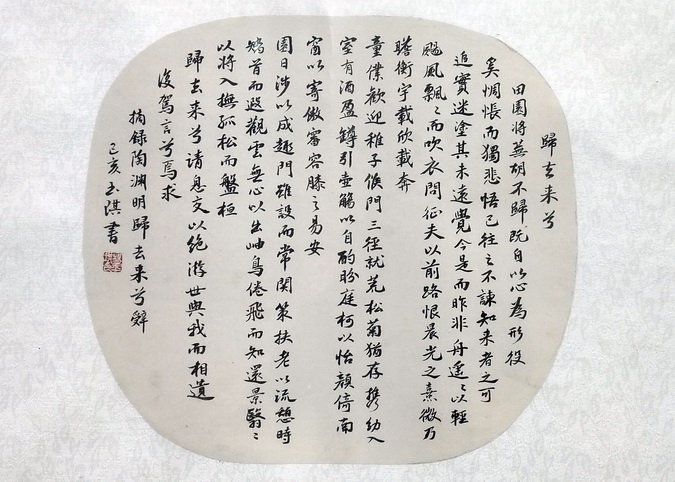 歸去来兮
田園将蕪胡不歸既自以心為形役
奚惆悵而獨悲悟已往之不諫知来者之可
追實迷塗其未遠覺今是而昨非舟遙〻以輕
颺風飄〻而吹衣問征夫以前路恨晨光之熹微乃
瞻衡宇載欣載奔
童僕歡迎稚子候門三徑就荒松菊猶存携幼入
室有酒盈罇引壺觴以自酌眄庭柯以怡顏倚南
窗以寄傲審容膝之易安
園日涉以成趣門雖設而常関策扶老以流憩時
矯首而遐觀雲無心以出岫鳥倦飛而知還景翳〻
以將入撫孤松而盤桓
歸去来兮請息交以絶游世與我而相遺
復駕言兮焉求
摘録陶淵明歸去来兮辭
己亥玉淇書